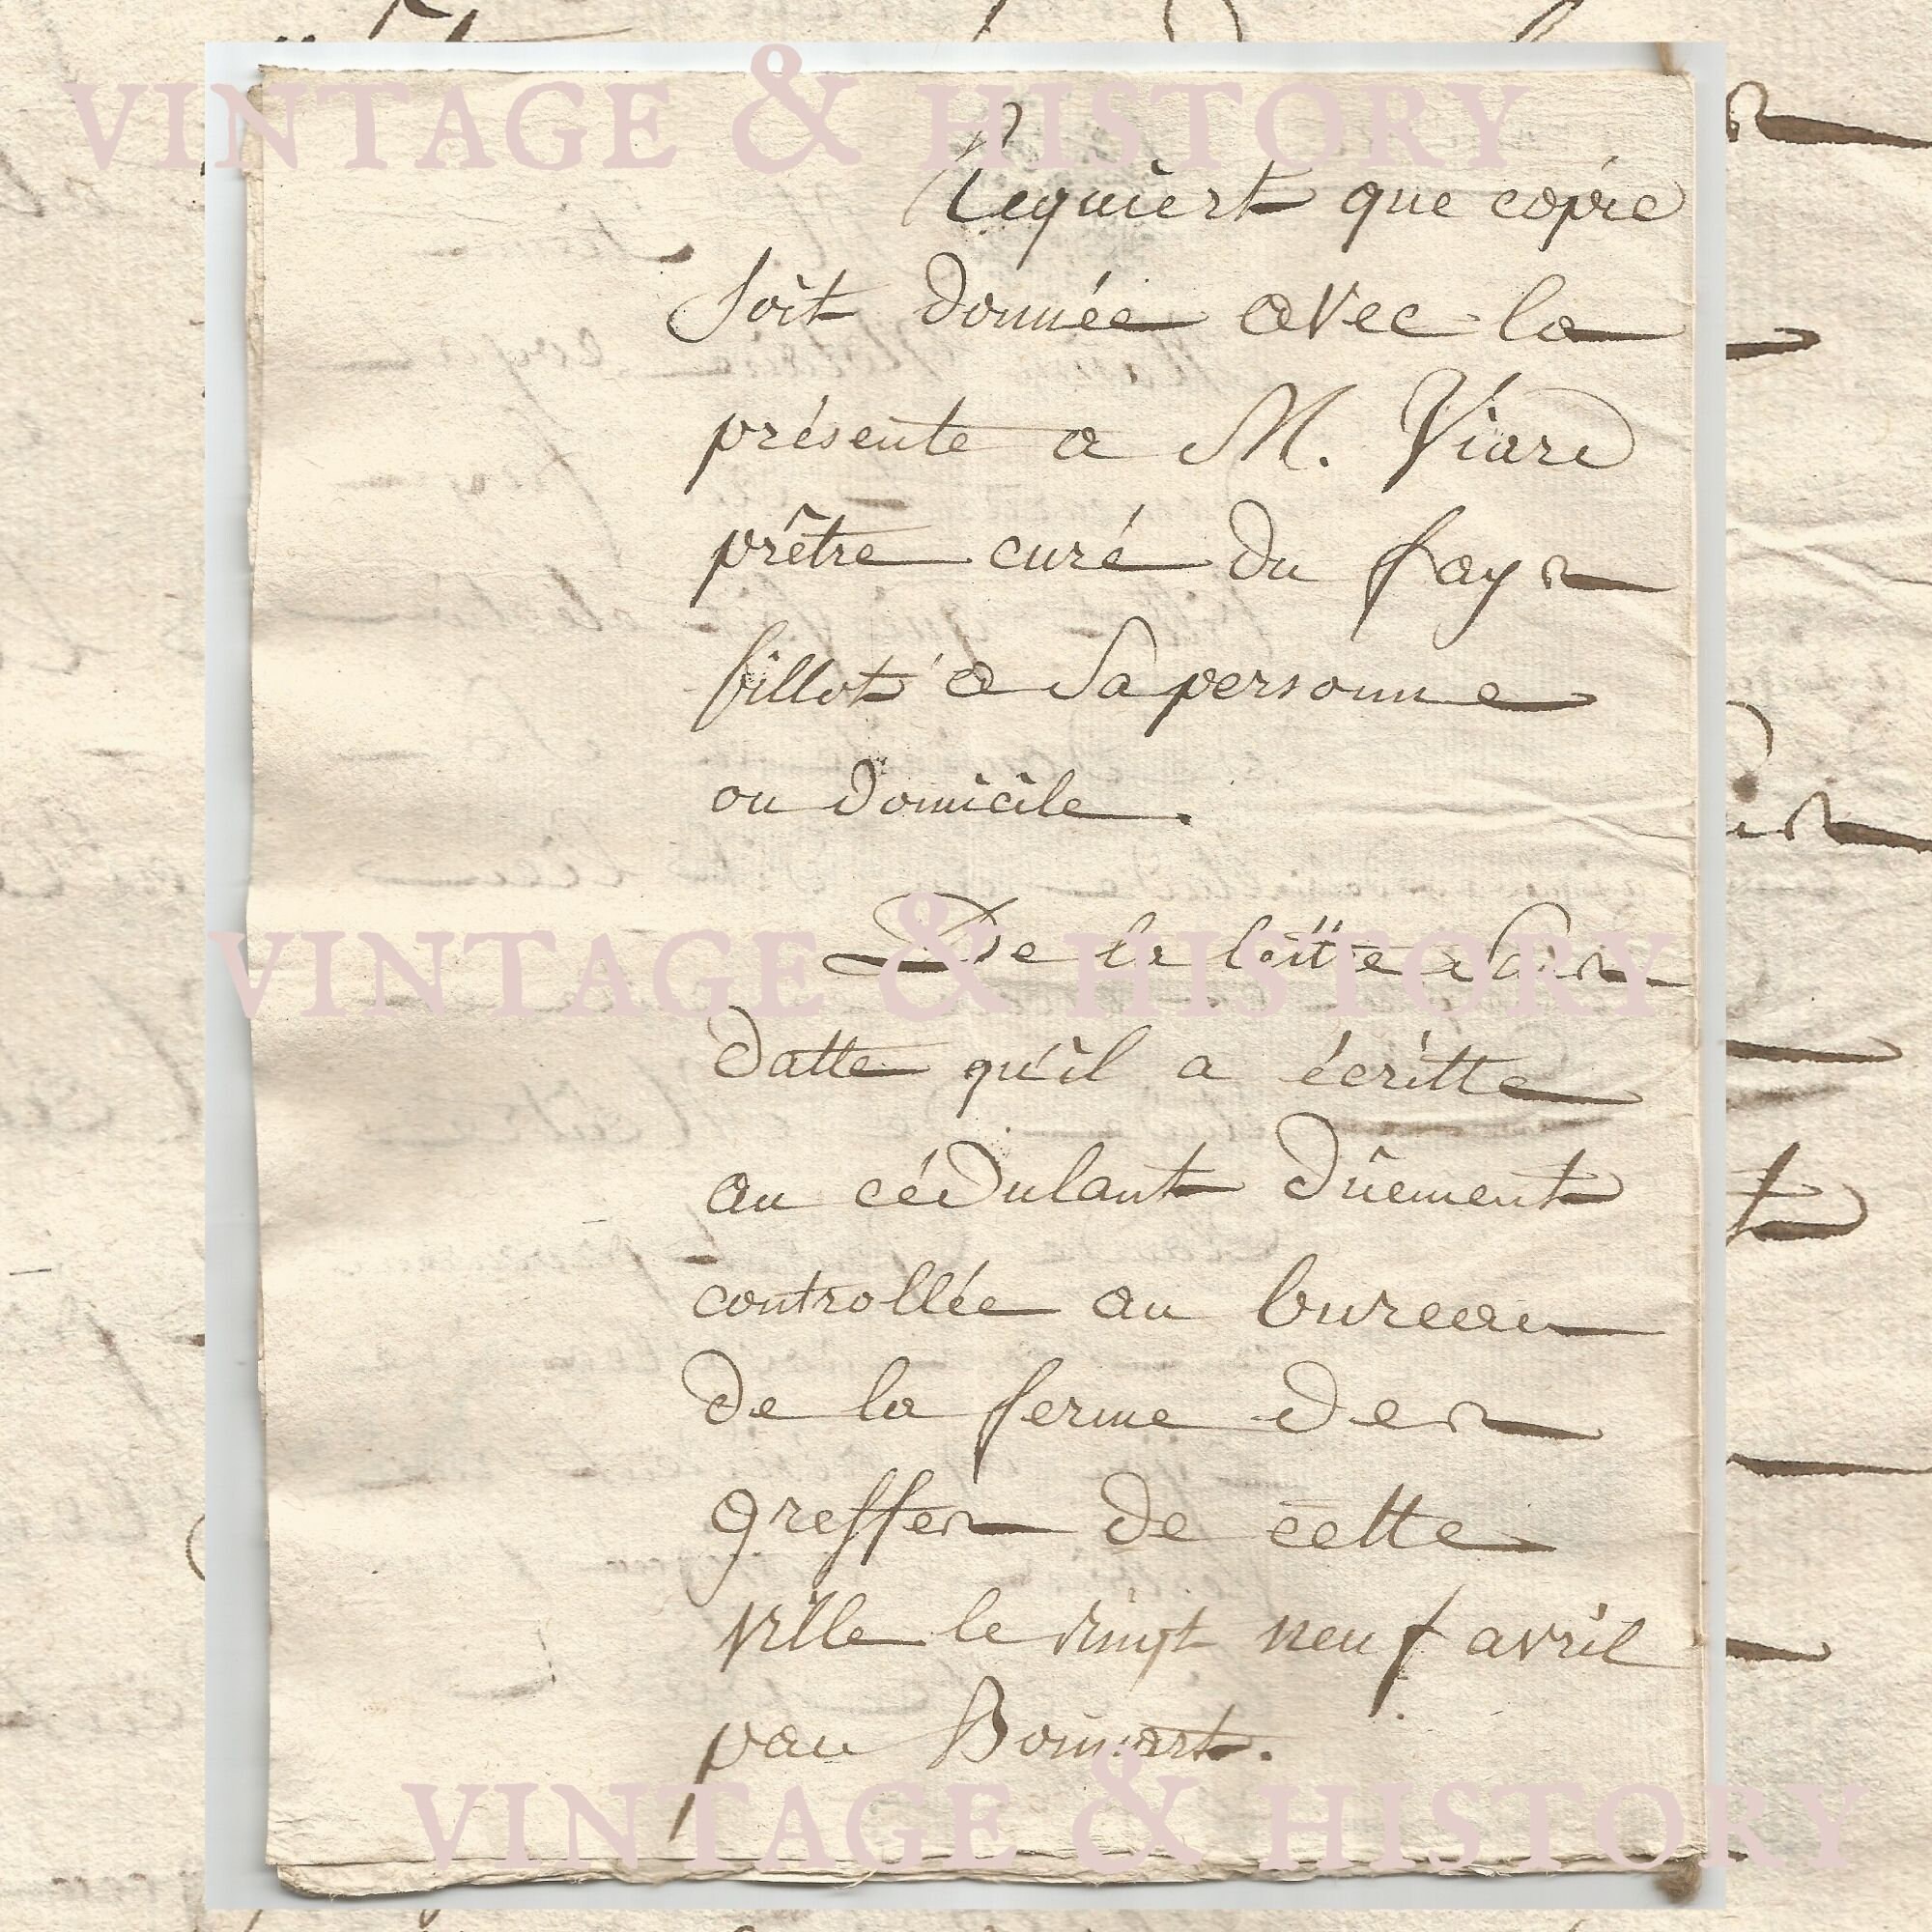 VINTAGE & HISTORY
Requiert que copie
soit donnée avec la
présente a M. Viard
prêtre curé du fays
billot a sa personne
ou domicile.
VINTAGE & HISTORY
De la lettre sans
datte qu'il a écritte
au cédulant dûement
controllée au bureau
de la ferme des
greffes de cette
ville le vingt neuf avril
par
VINTAGE & HISTORY